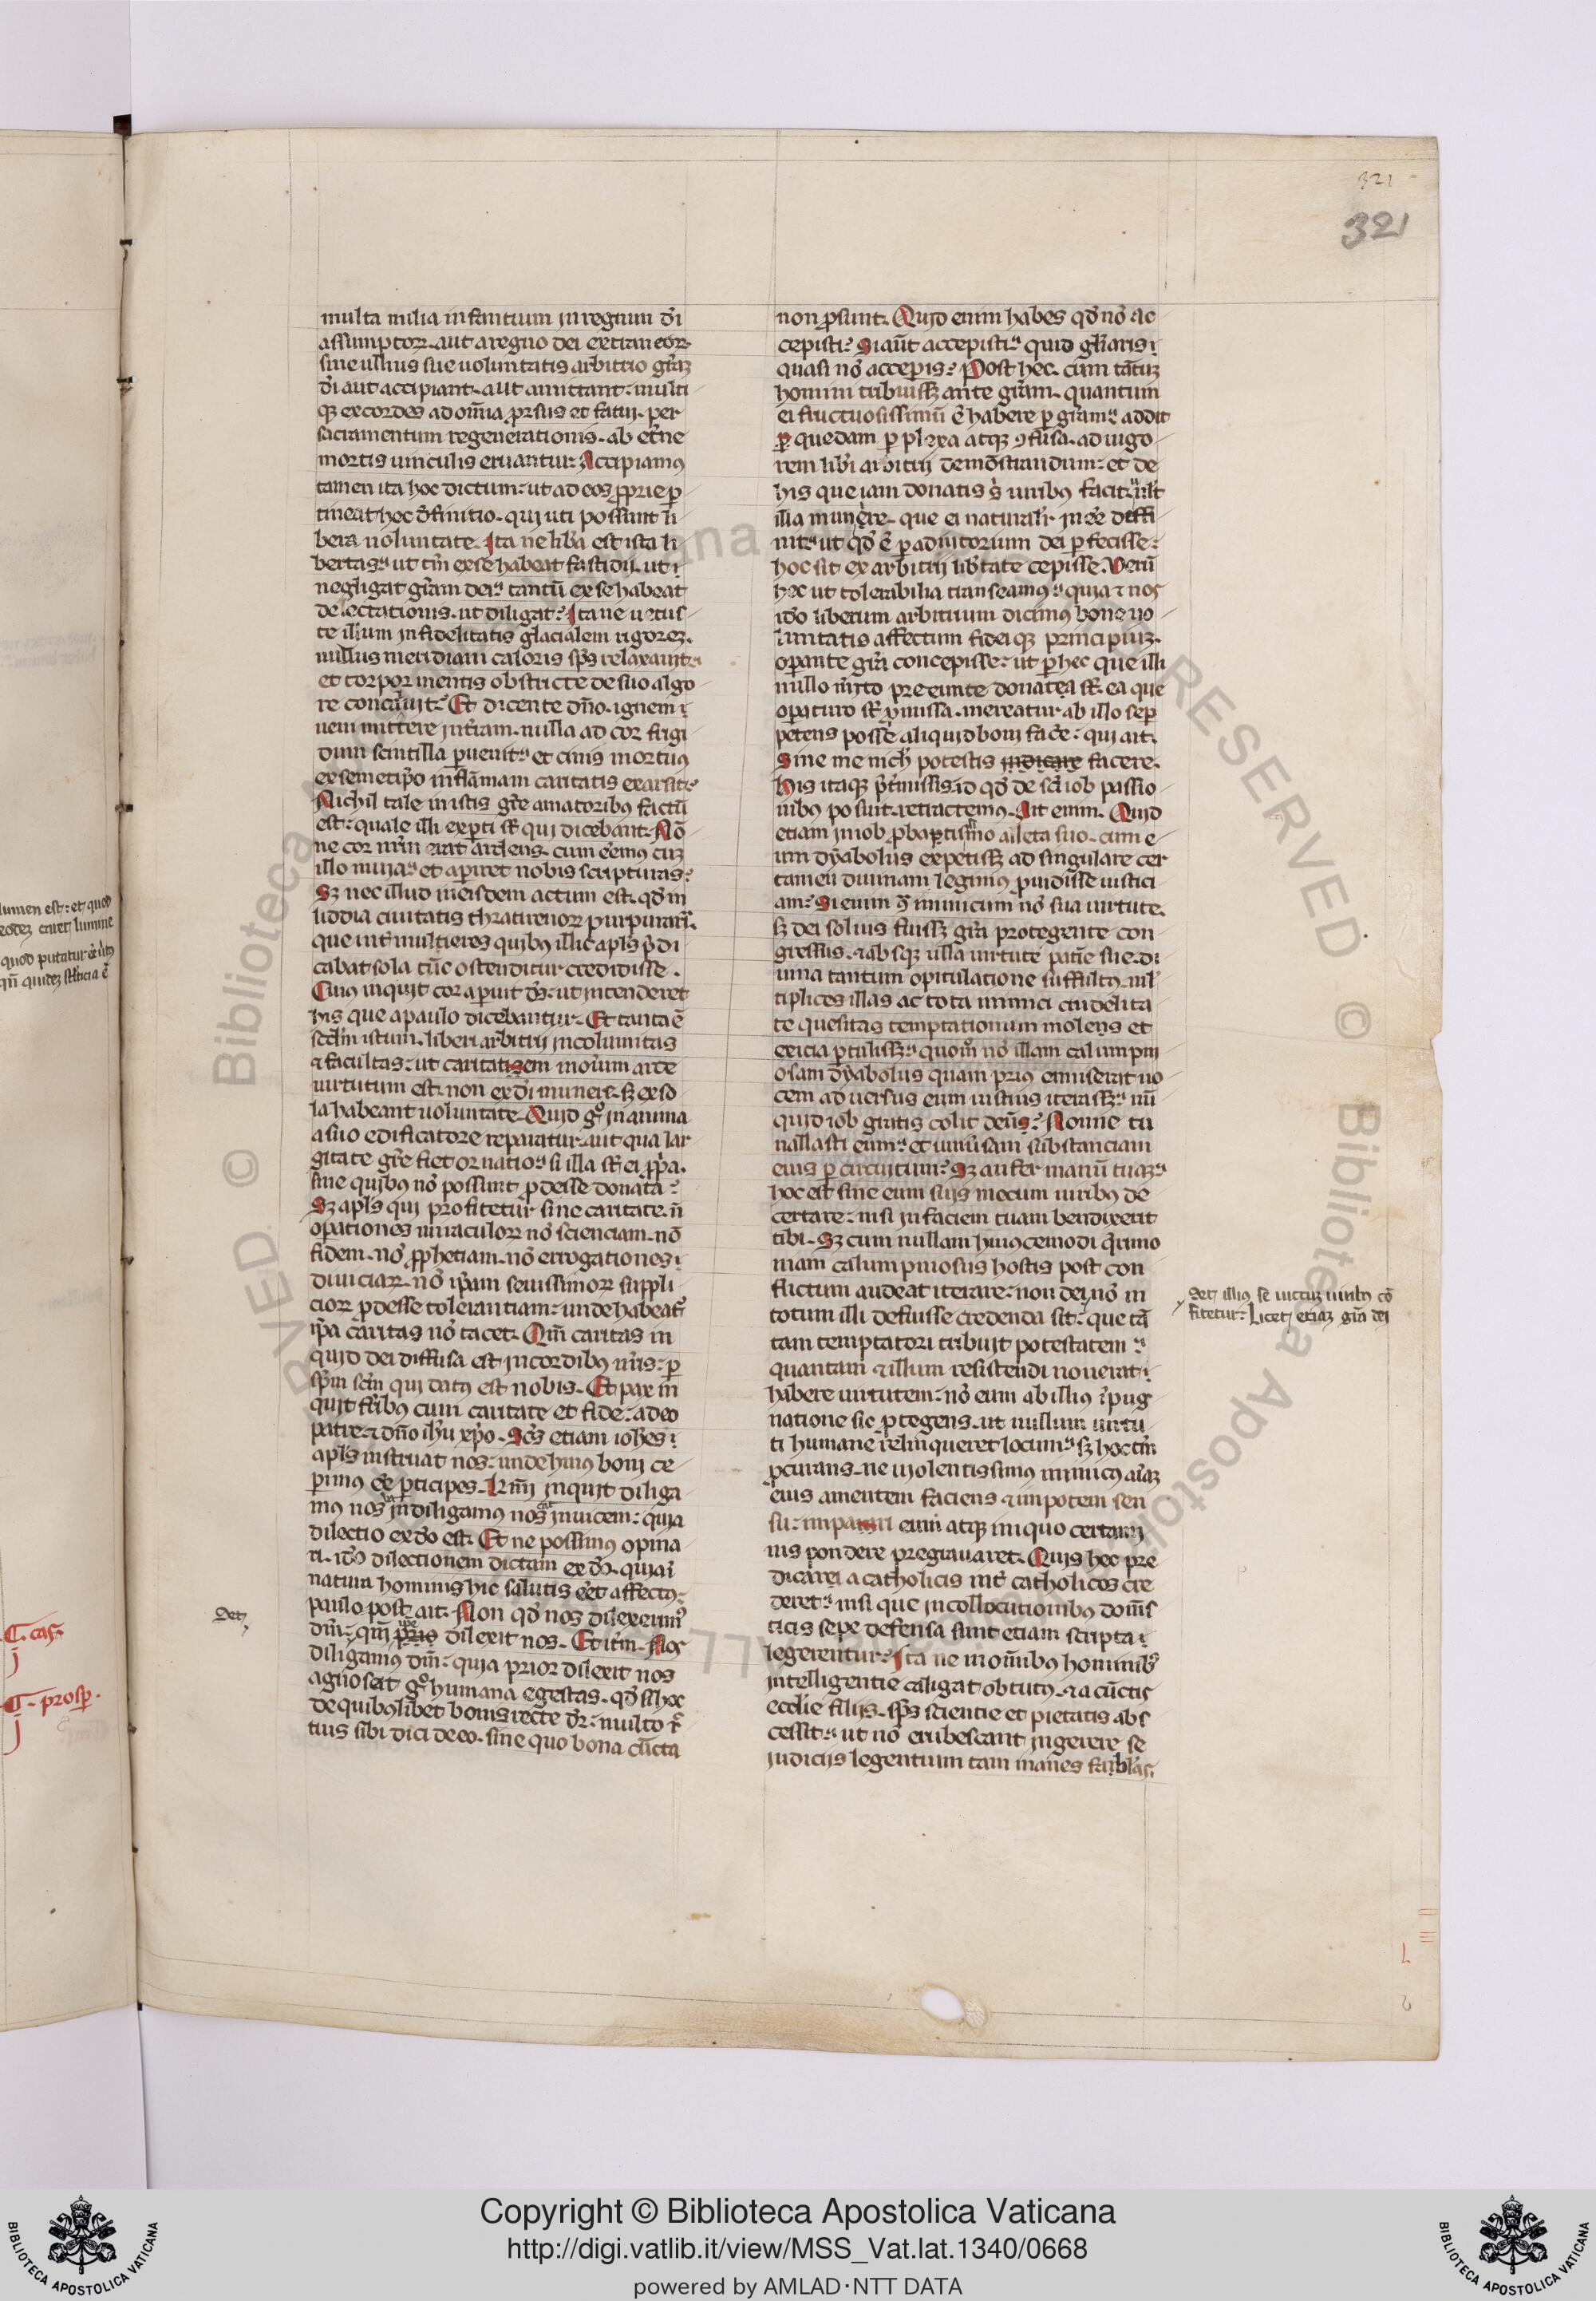 321
321
multa milia infantium in regnum d̄i
assumptoꝝ. aut a regno dei extraneoꝝ.
sine ullius sue uoluntatis arbitrio gr̄aꝫ
d̄i aut accipiant. aut amittant: multi
qꝫ excordes ad om̄ia ꝓrsus et fatui. per
sacramentum regenerationis. ab et̄ne
mortis uinculis eruantur: Accipiamꝰ
tamen ita hoc dictum: ut ad eos ꝓprie ꝑ
tineat hec d̓finitio. qui uti possunt li
bera uoluntate. Ita ne lib̓a est ista li
bertas: ut tm̄ ex se habeat fastidij. ut ī
negligat gr̄am dei: tantū ex se habeat
delectationis. ut diligat: Ita ne uetus
te illum infidelitatis glacialem rigoreꝫ.
nullus meridiani caloris sp̄s relaxauit:
et torpor mentis obstricte de suo algo
re concaluit: Et dicente dn̄o. ignem ī
ueni mittere in t̓ram. nulla ad cor frigi
dum scintilla ꝑuenit: et cinis mortuꝰ
ex semetip̄o in flāmam caritatis exarsit:
Nichil tale in istis gr̄e amatoribꝰ factū
est: quale illi exꝑti st̄ qui dicebant. Nō
ne cor nr̄m erat ardens. cum eemꝰ cuꝫ
illo in uia: et aperiret nobis scripturas:
Sꝫ nec illud in eisdem actum est. qd̓ in
liddia ciuitatis thiatirenoꝝ purpurar̄.
que int̓ mulieres quibꝰ illic apl̄s p̄di
cabat sola tūc ostenditur credidisse.
Cuiꝰ inquit cor aperuit d̄s: ut intenderet
his que a paulo dicebantur. Et tanta ē
scd̄m istum. liberi arbitrij incolumitas
⁊ facultas: ut caritatisem
uirtutum est. non ex d̄i munere. sꝫ ex so
la habeant uoluntate. Quid gͦ in anima
a suo edificatore reparatur. aut qua lar
gitate gr̄e fiet ornatio: si illa st̄ ei ꝓp̄a.
sine quibꝰ nō possunt ꝓdesse donata:
Sꝫ apl̄s qui profitetur sine caritate. n̄
oꝑationes miraculoꝝ nō scienciam. nō
fidem. nō ꝓphetiam. nō errogationes ī
diuiciaꝝ. nō ip̄am seuissimoꝝ suppli
cioꝝ ꝓdesse tolerantiam: unde habeat᷑
ip̄a caritas nō tacet. Qm̄ caritas in
quid dei diffusa est in cordibꝰ nr̄is: ꝑ
sp̄m sc̄m qui datꝰ est nobis. Et pax in
quit fr̄ibꝰ cum caritate et fide: a deo
patre. ⁊ dn̄o ih̄u xp̄o. Sc̄s etiam ioh̄es ī
apl̄s instruat nos: unde huiꝰ boni ce
ꝑimus ee ꝑticipes. Kr̄mi inquit diliga
mus nos inuicem: quia
dilectio ex d̓o est. Et ne possimus opina
ri. id̓o dilectionem dictam ex d̓o. quia ī
natura hominis hic salutis eēt affectꝰ:
paulo post ait. Non qd̓ nos dilexerimꝰ
dm̄: qm̄ ip̄e dilexit nos. Et it̄m. Nos
diligamus dm̄: quia prior dilexit nos
agnoscat gͦ humana egestas. qd̓ si hoc
de quibꝰlibet bonis recte d̄r: multo r̓c̄
tius sibi dici de eo. sine quo bona cūcta
non ꝓsunt. Quid enim habes qd̓ nō ac
cepisti: Si aūt accepisti: quid gl̄iaris ī
quasi nō acceꝑis: Post hec. cum tātuꝫ
homini tribuissꝫ ante gr̄am. quantum
ei fructuosissimū ē habere ꝑ gr̄am: addit
quedam ꝑplexa atqꝫ ꝯfusa. ad uigo
rem lib̓i arbitrij demōstrandum: et de
his que iam donatis s̄ uiribꝰ facit: uel̓t
illa munere. que ei naturalr̄ in ee diffi
nit: ut qd̓ ē ꝑ adiutorium dei ꝑfecisse:
hoc sit ex arbitrij lib̓tate cepisse. Verū
hec ut tolerabilia transeamꝰ: quia ⁊ nos
id̓o liberum arbitrium dicimꝰ bone uo
luntatis affectum fideiqꝫ principiuꝫ.
oꝑante gr̄a concepisse: ut ꝑ hec que illi
nullo m̓ito preeunte donata st̄. ea que
oꝑaturo st̄ ꝓmissa. mereatur ab illo seꝑ
petens posse aliquid boni fac̓e: qui ait.
Sine me nich̓ potestis facere.
His itaqꝫ p̄t̓missis. id qd̓ de sc̄i iob passio
nibꝰ posuit. retractemꝰ. Ait enim. Quid
etiam in iob ꝓbatissimo athleta suo. cum e
um dyabolus expetissꝫ ad singulare cer
tamen diuinam legimꝰ ꝓuidisse iustici
am: Si enim cͣ inimicum nō sua uirtute.
sꝫ dei solius fuissꝫ gr̄a protegente con
gressus. ⁊ absqꝫ ulla uirtute patiē sue. di
uina tantum opitulatione suffultꝰ. ml̓
tiplices illas ac tota inimici crudelita
te quesitas temptationum moles et
exicia ꝑtulissꝫ: quomͦ nō illam calumpni
osam dyabolus quam priꝰ emiserat uo
cem aduersus eum iustius iterassꝫ: nū
quid iob gratis colit deūs: Nonne tu
uallasti eum: et uniu̓sam substanciam
eius ꝑ circuitum: Sꝫ aufer manū tuaꝫ:
hoc est sine eum suis mecum uiribꝰ de
certare: nisi in faciem tuam bendixerit
tibi. Sꝫ cum nullam huiꝰcemodi q̓rimo
niam calumpniosus hostis post con
flictum audeat iterare: non dei nō in
totum illi defuisse credenda sit: que tā
tam temptatori tribuit potestatem:
quantam ⁊ illum resistendi nouerat ī
habere uirtutem: nō eum ab illiꝰ īpug
natione sic ꝓtegens. ut nullum uirtu
ti humane relinqueret locum: sꝫ hoc tm̄
ꝓcurans. ne uiolentissimus inimicꝰ aīaꝫ
eius amentem faciens ⁊ impotem sen
su: impari eum atqꝫ iniquo certami
nis pondere pregrauaret. Quis hec pre
dicari a catholicis int̓ catholicos cre
deret: nisi que in collocutionibꝰ dom̄s
ticis sepe defensa sunt etiam scripta ī
legerentur: Ita ne in om̄ibꝰ hominibꝰ
intelligentie caligat obtutꝰ. ⁊ a cūctis
eccl̓ie filijs. sp̄s scientie et pietatis abs
cessit: ut nō erubescant ingerere se
iudicijs legentium tam inanes fabl̓as.
detꝫ illiꝰ se uictuꝫ uiribꝰ cō
fitetur: licetꝫ etiaꝫ gr̄a dei
detꝫ
lumen est: et quod
eodeꝫ caret lumine
C. cas.
C. prosp.
Copyright © Biblioteca Apostolica Vaticana
http://digi.vatlib.it/view/MSS_Vat.lat.1340/0668
powered by AMLAD·NTT DATA
BIBLIOTECA APOSTOLICA VATICANA
BIBLIOTECA APOSTOLICA VATICANA